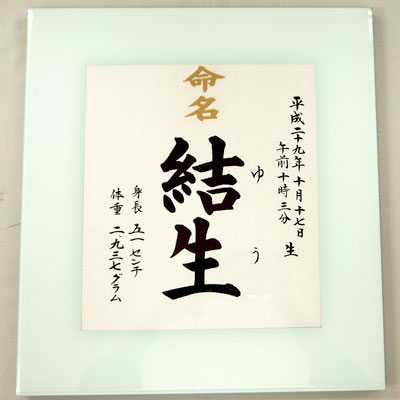 平成二十九年十月十七日
午前十時三分
生
命名
結生
ゆう
身長 五一センチ
体重 二、九三七グラム